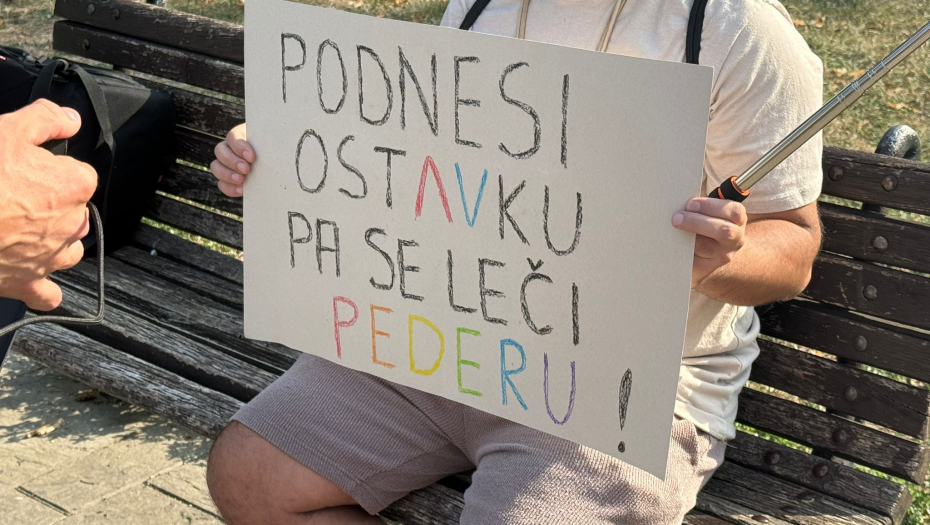 PODNESI
OSTAVKU
PA SE LEČI
PEDERU!